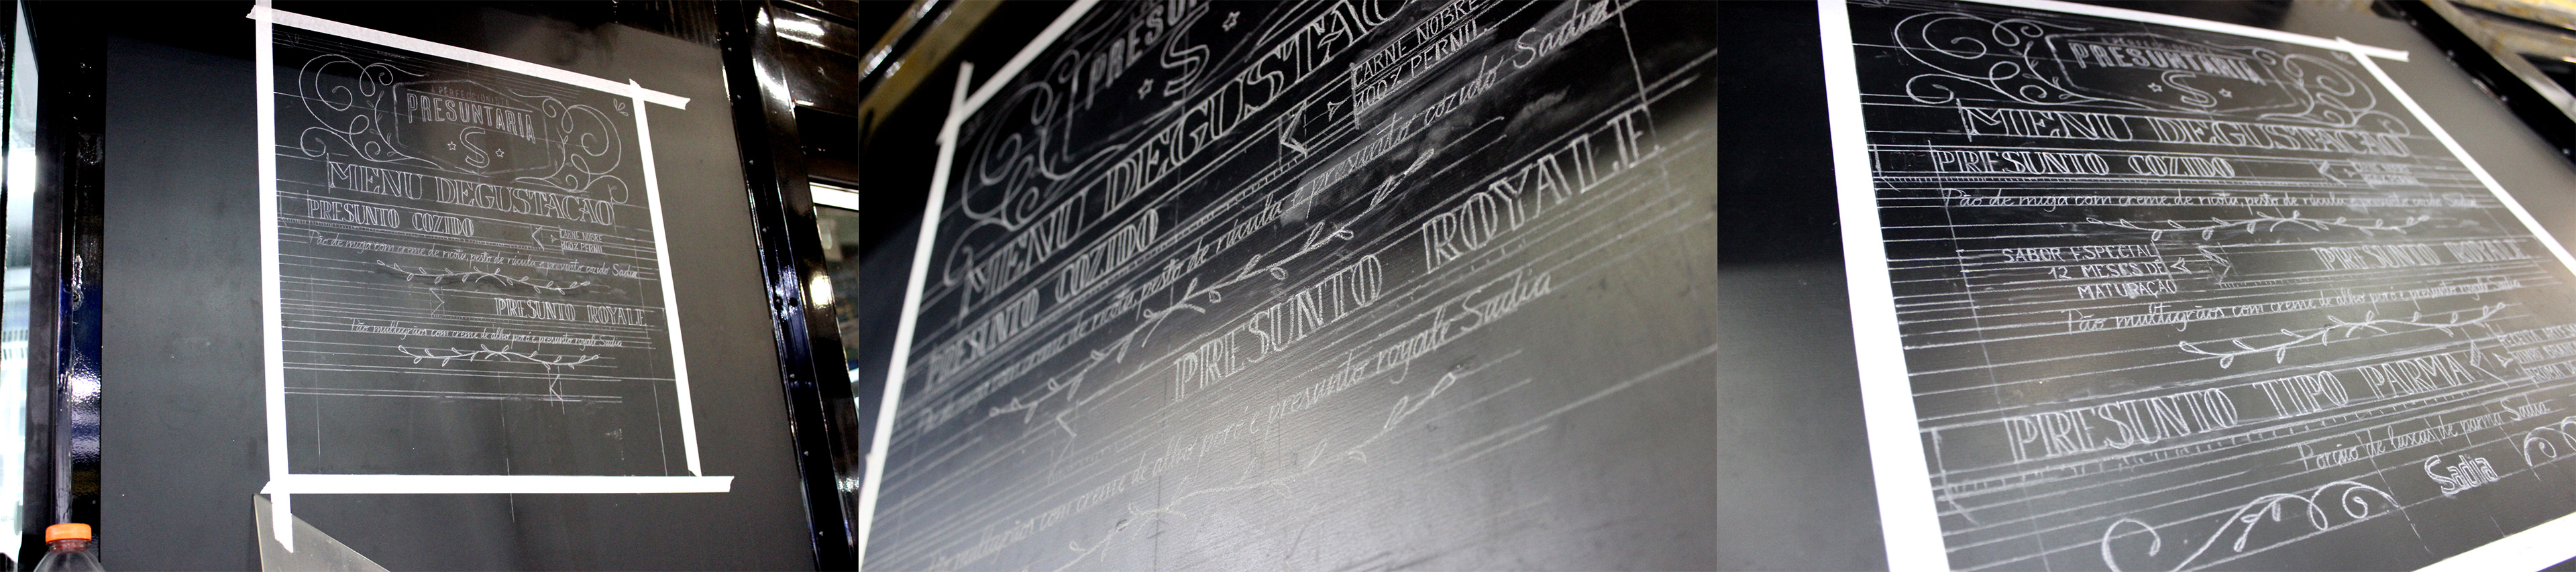 A PERFECCIONISTA
PRESUNTARIA
S
MENU DEGUSTAÇAO
PRESUNTO COZIDO
CARNE NOBRE
100% PERNIL
Pão de miga com creme de ricota, pesto de rúcula e presunto cozido Sadia
PRESUNTO ROYALE
Pão multigrãos com creme de alho poró e presunto royale Sadia
PRESUN
S
MENU DEGUSTAÇÃO
CARNE NOBRE
100% PERNIL.
PRESUNTO COZIDO
creme de ricota, pesto de rúcula e presunto cozido Sadia
PRESUNTO ROYALE
Pão multigrãos com creme de alho poró e presunto royale Sadia
PRESUNTARIA
S
MENU DEGUSTAÇAO
PRESUNTO COZIDO
Pão de miga com creme de ricota, pesto de rúcula e presunto cozido Sadia
SABOR ESPECIAL
12 MESES DE
MATURAÇÃO
PRESUNTO ROYALE
Pão multigrãos com creme de alho poró e presunto royale Sadia
PRESUNTO TIPO PARMA
Porção de lascas de parma Sadia
Sadia